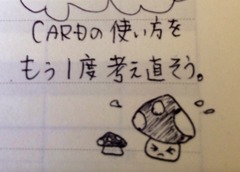 CARDの使い方を
もう1度考え直そう。